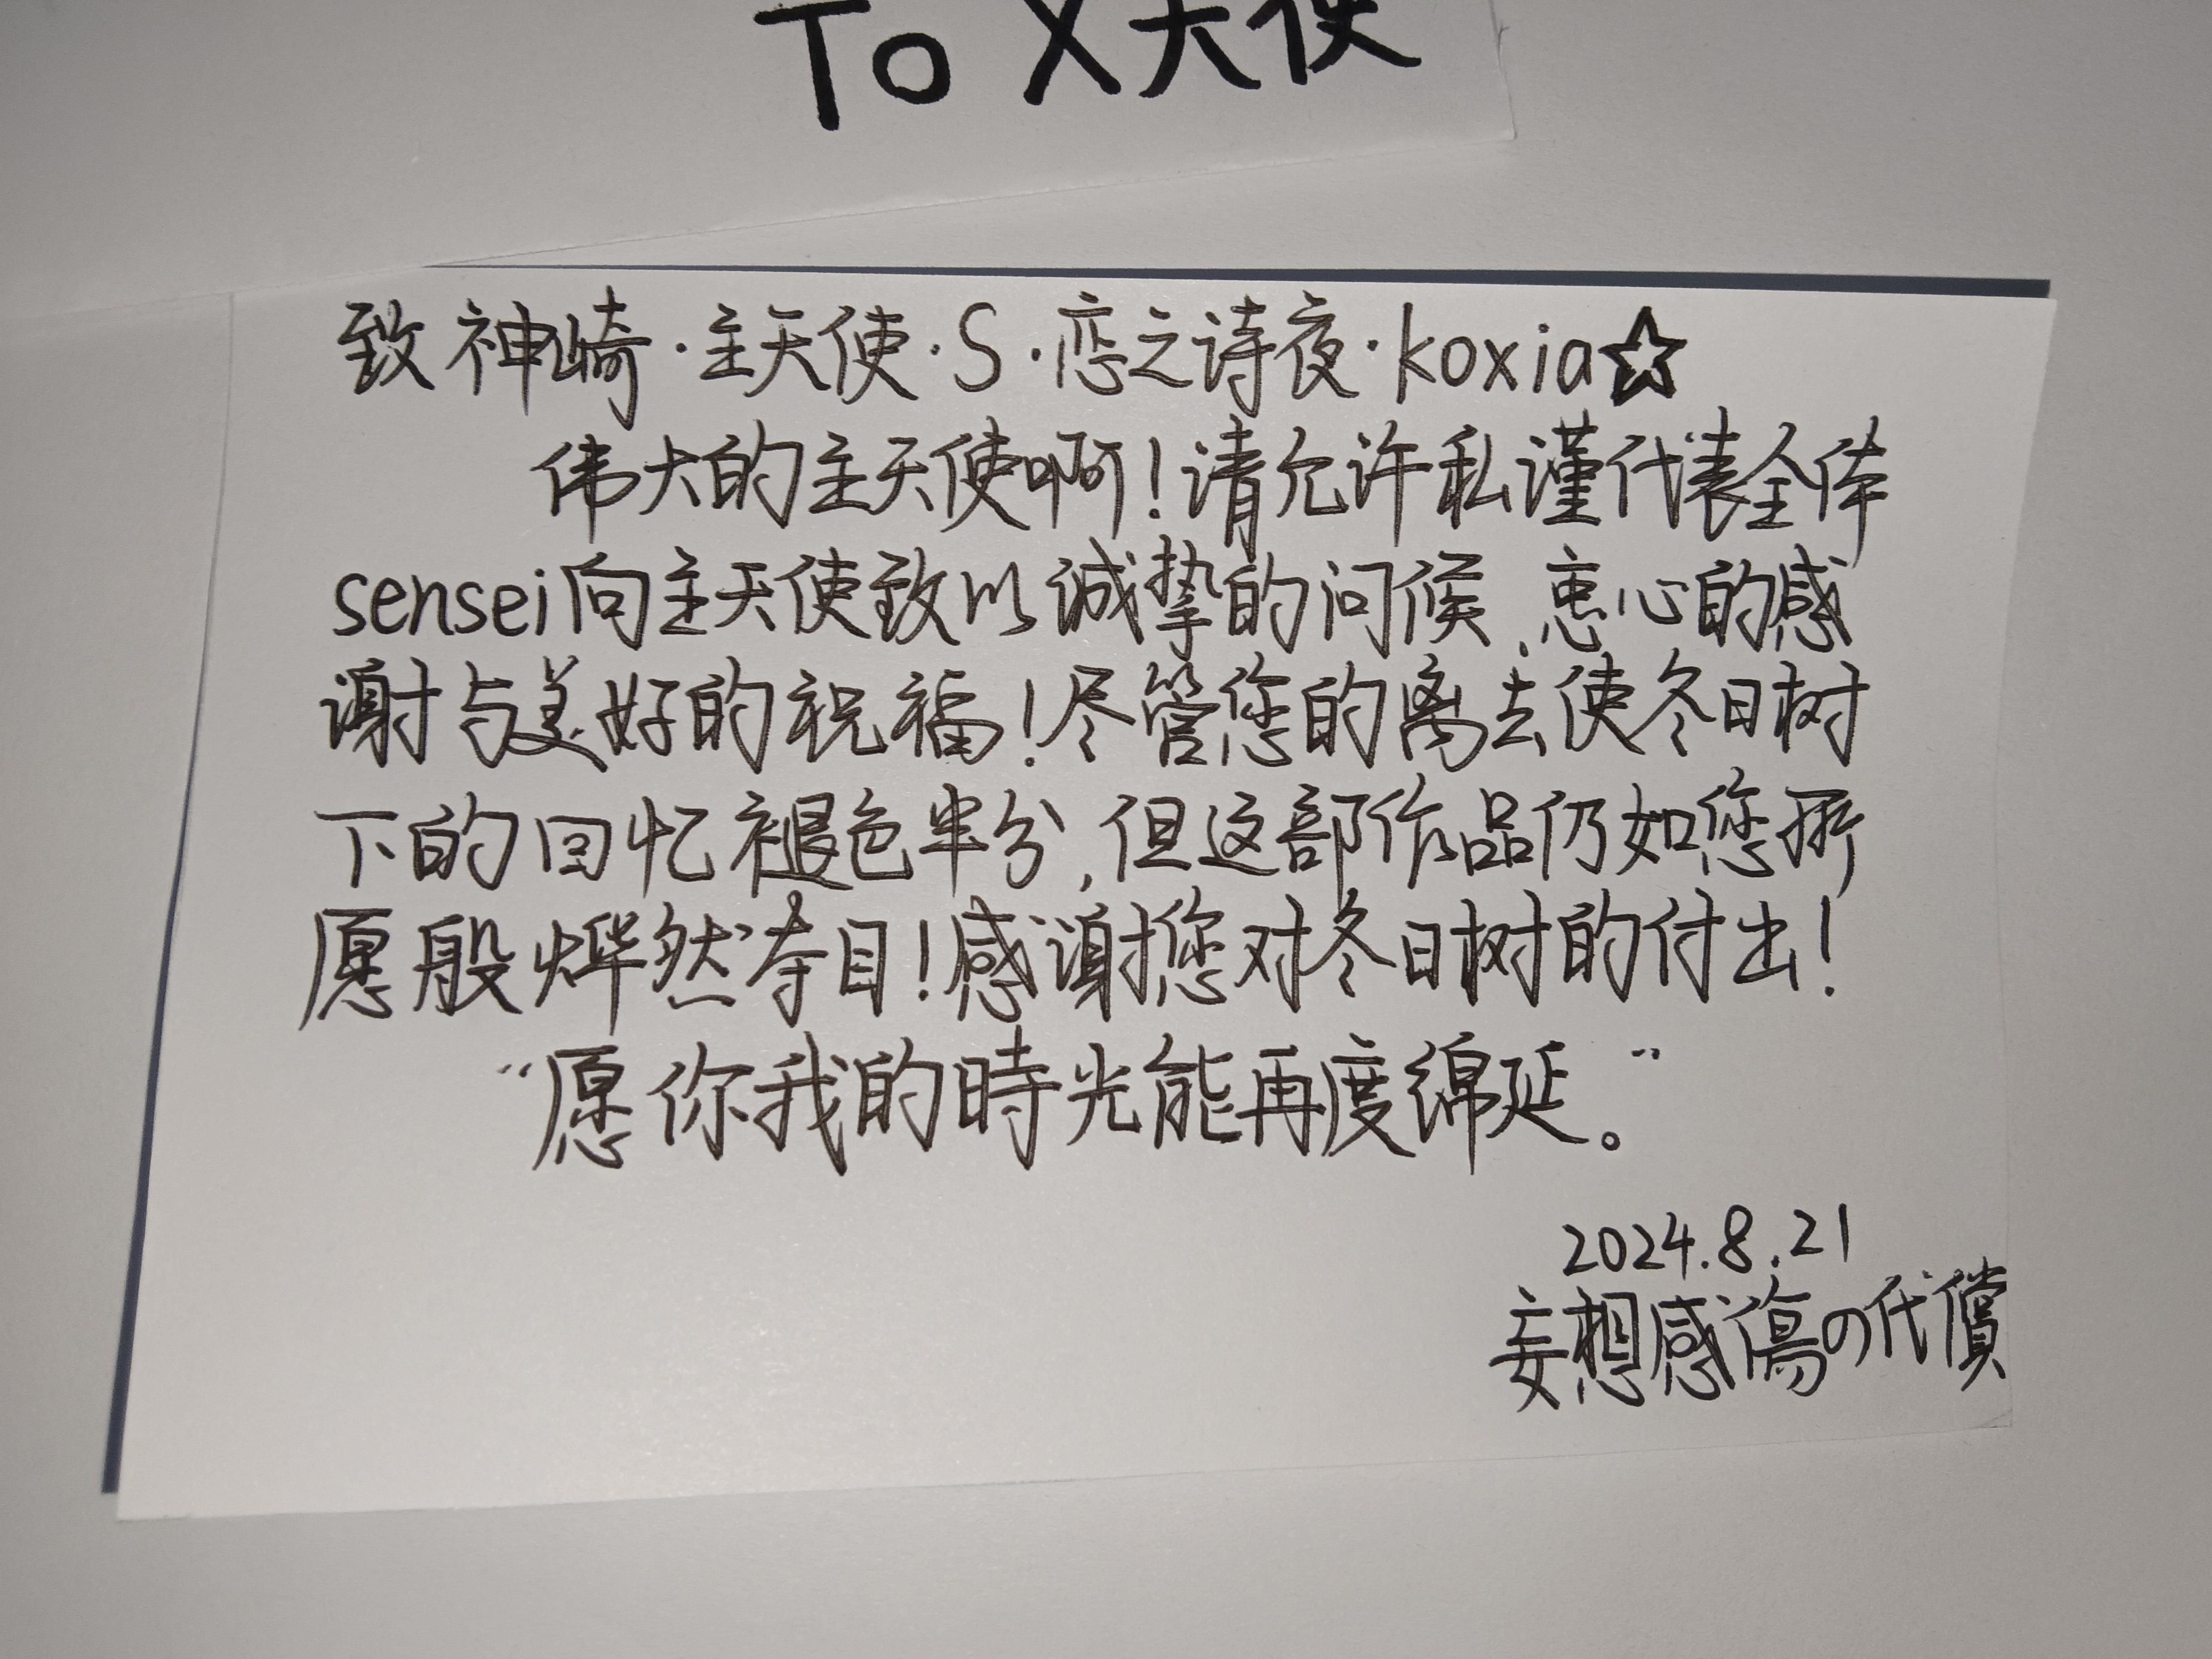 To X天使
致神崎·主天使·S·恋之诗夜·koxia☆
伟大的主天使啊！请允许私谨代表全体
sensei向主天使致以诚挚的问候,衷心的感
谢与美好的祝福！尽管您的离去使冬日树
下的回忆褪色半分,但这部作品仍如您所
愿般烨然夺目！感谢您对冬日树的付出！
“愿你我的時光能再度绵延。”
2024.8.21
妄想感傷の代償